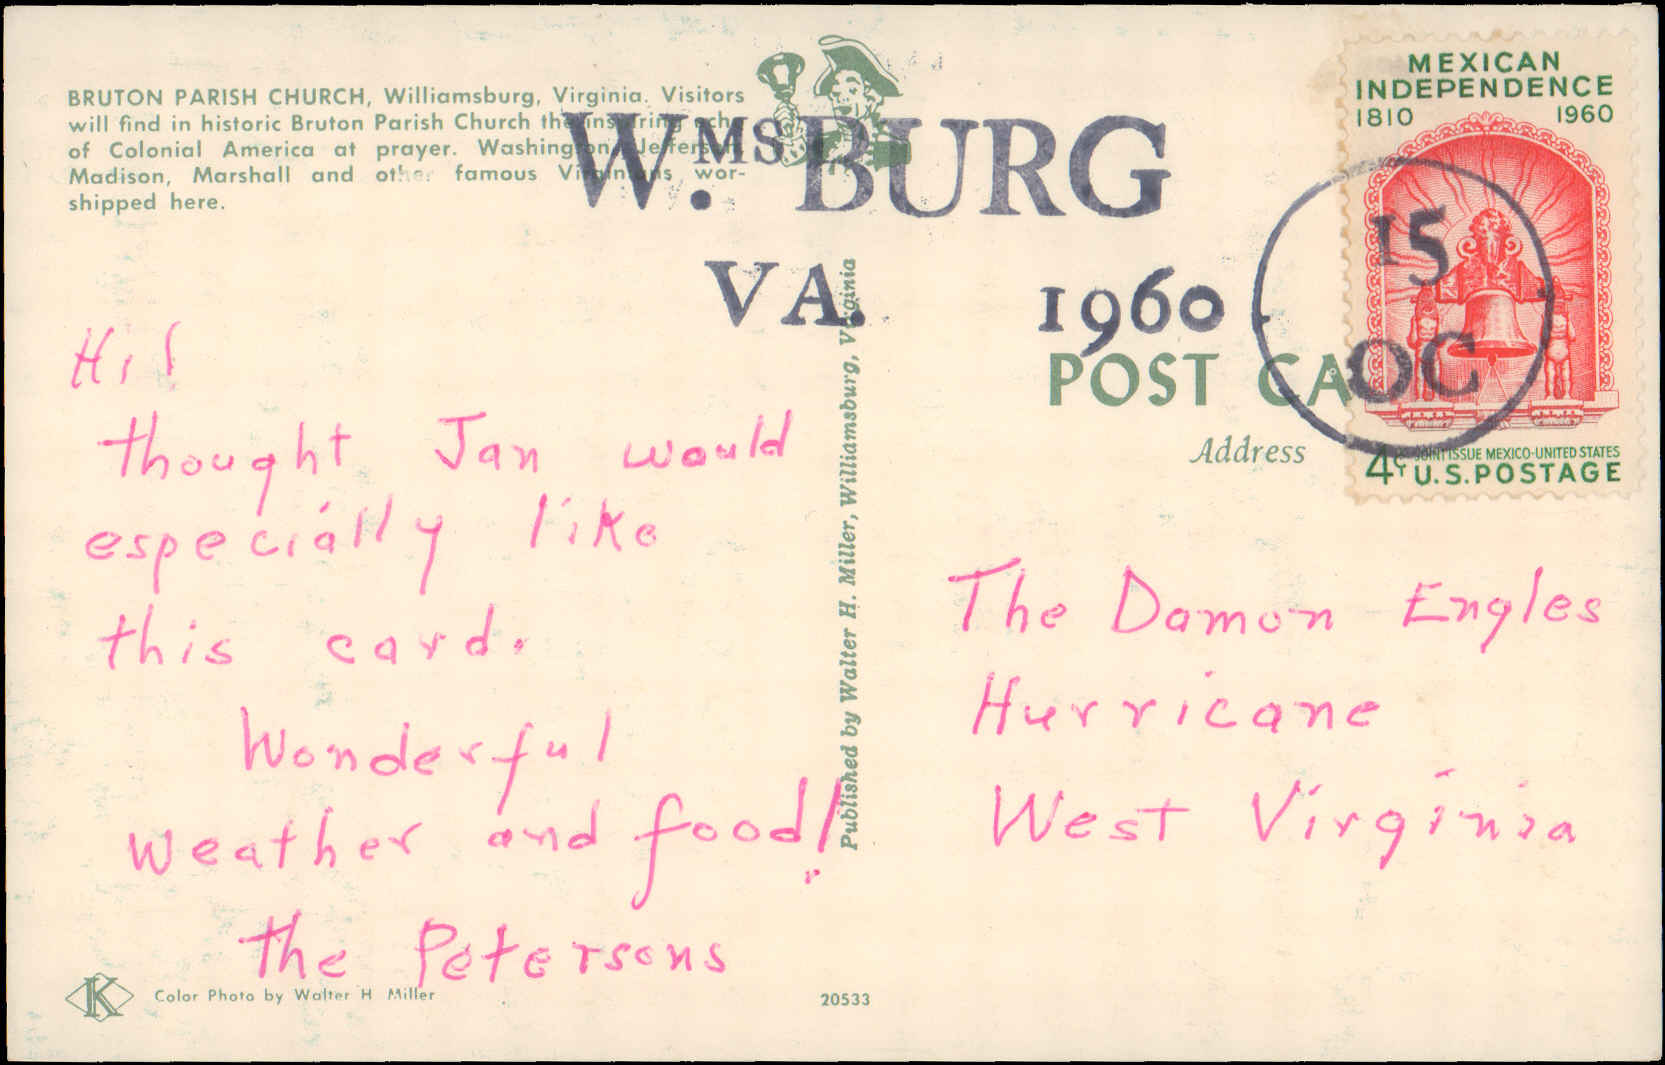 BRUTON PARISH CHURCH, Williamsburg, Virginia. Visitors
will find in historic Bruton Parish Church the inspiring echo
of Colonial America at prayer. Washington, Jefferson,
Madison, Marshall and other famous Virginians wor-
shipped here.
W.MSBURG
VA. 1960.
15
OC
MEXICAN
INDEPENDENCE
1810 1960
JOINT ISSUE MEXICO-UNITED STATES
4¢ U.S. POSTAGE
POST CA
Address
Hi!
thought Jan would
especially like
this card.
Wonderful
weather and food!
The Petersons
Published by Walter H. Miller, Williamsburg, Virginia
The Damon Engles
Hurricane
West Virginia
K
Color Photo by Walter H Miller
20533